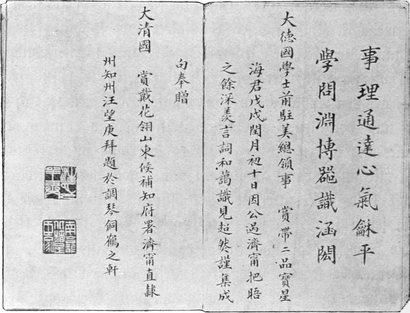 事理通達心氣龢平
學問淵博器識涵閎
大德國學士前駐美總領事 賞帶二品寶星
海君戊戌閏月初十日因公過濟甯把晤
之餘深羨言詞和藹識見超然謹集成
句奉贈
大清國 賞戴花翎山東候補知府署濟甯直隸
州知州汪望庚拜題於調琴飼鶴之軒